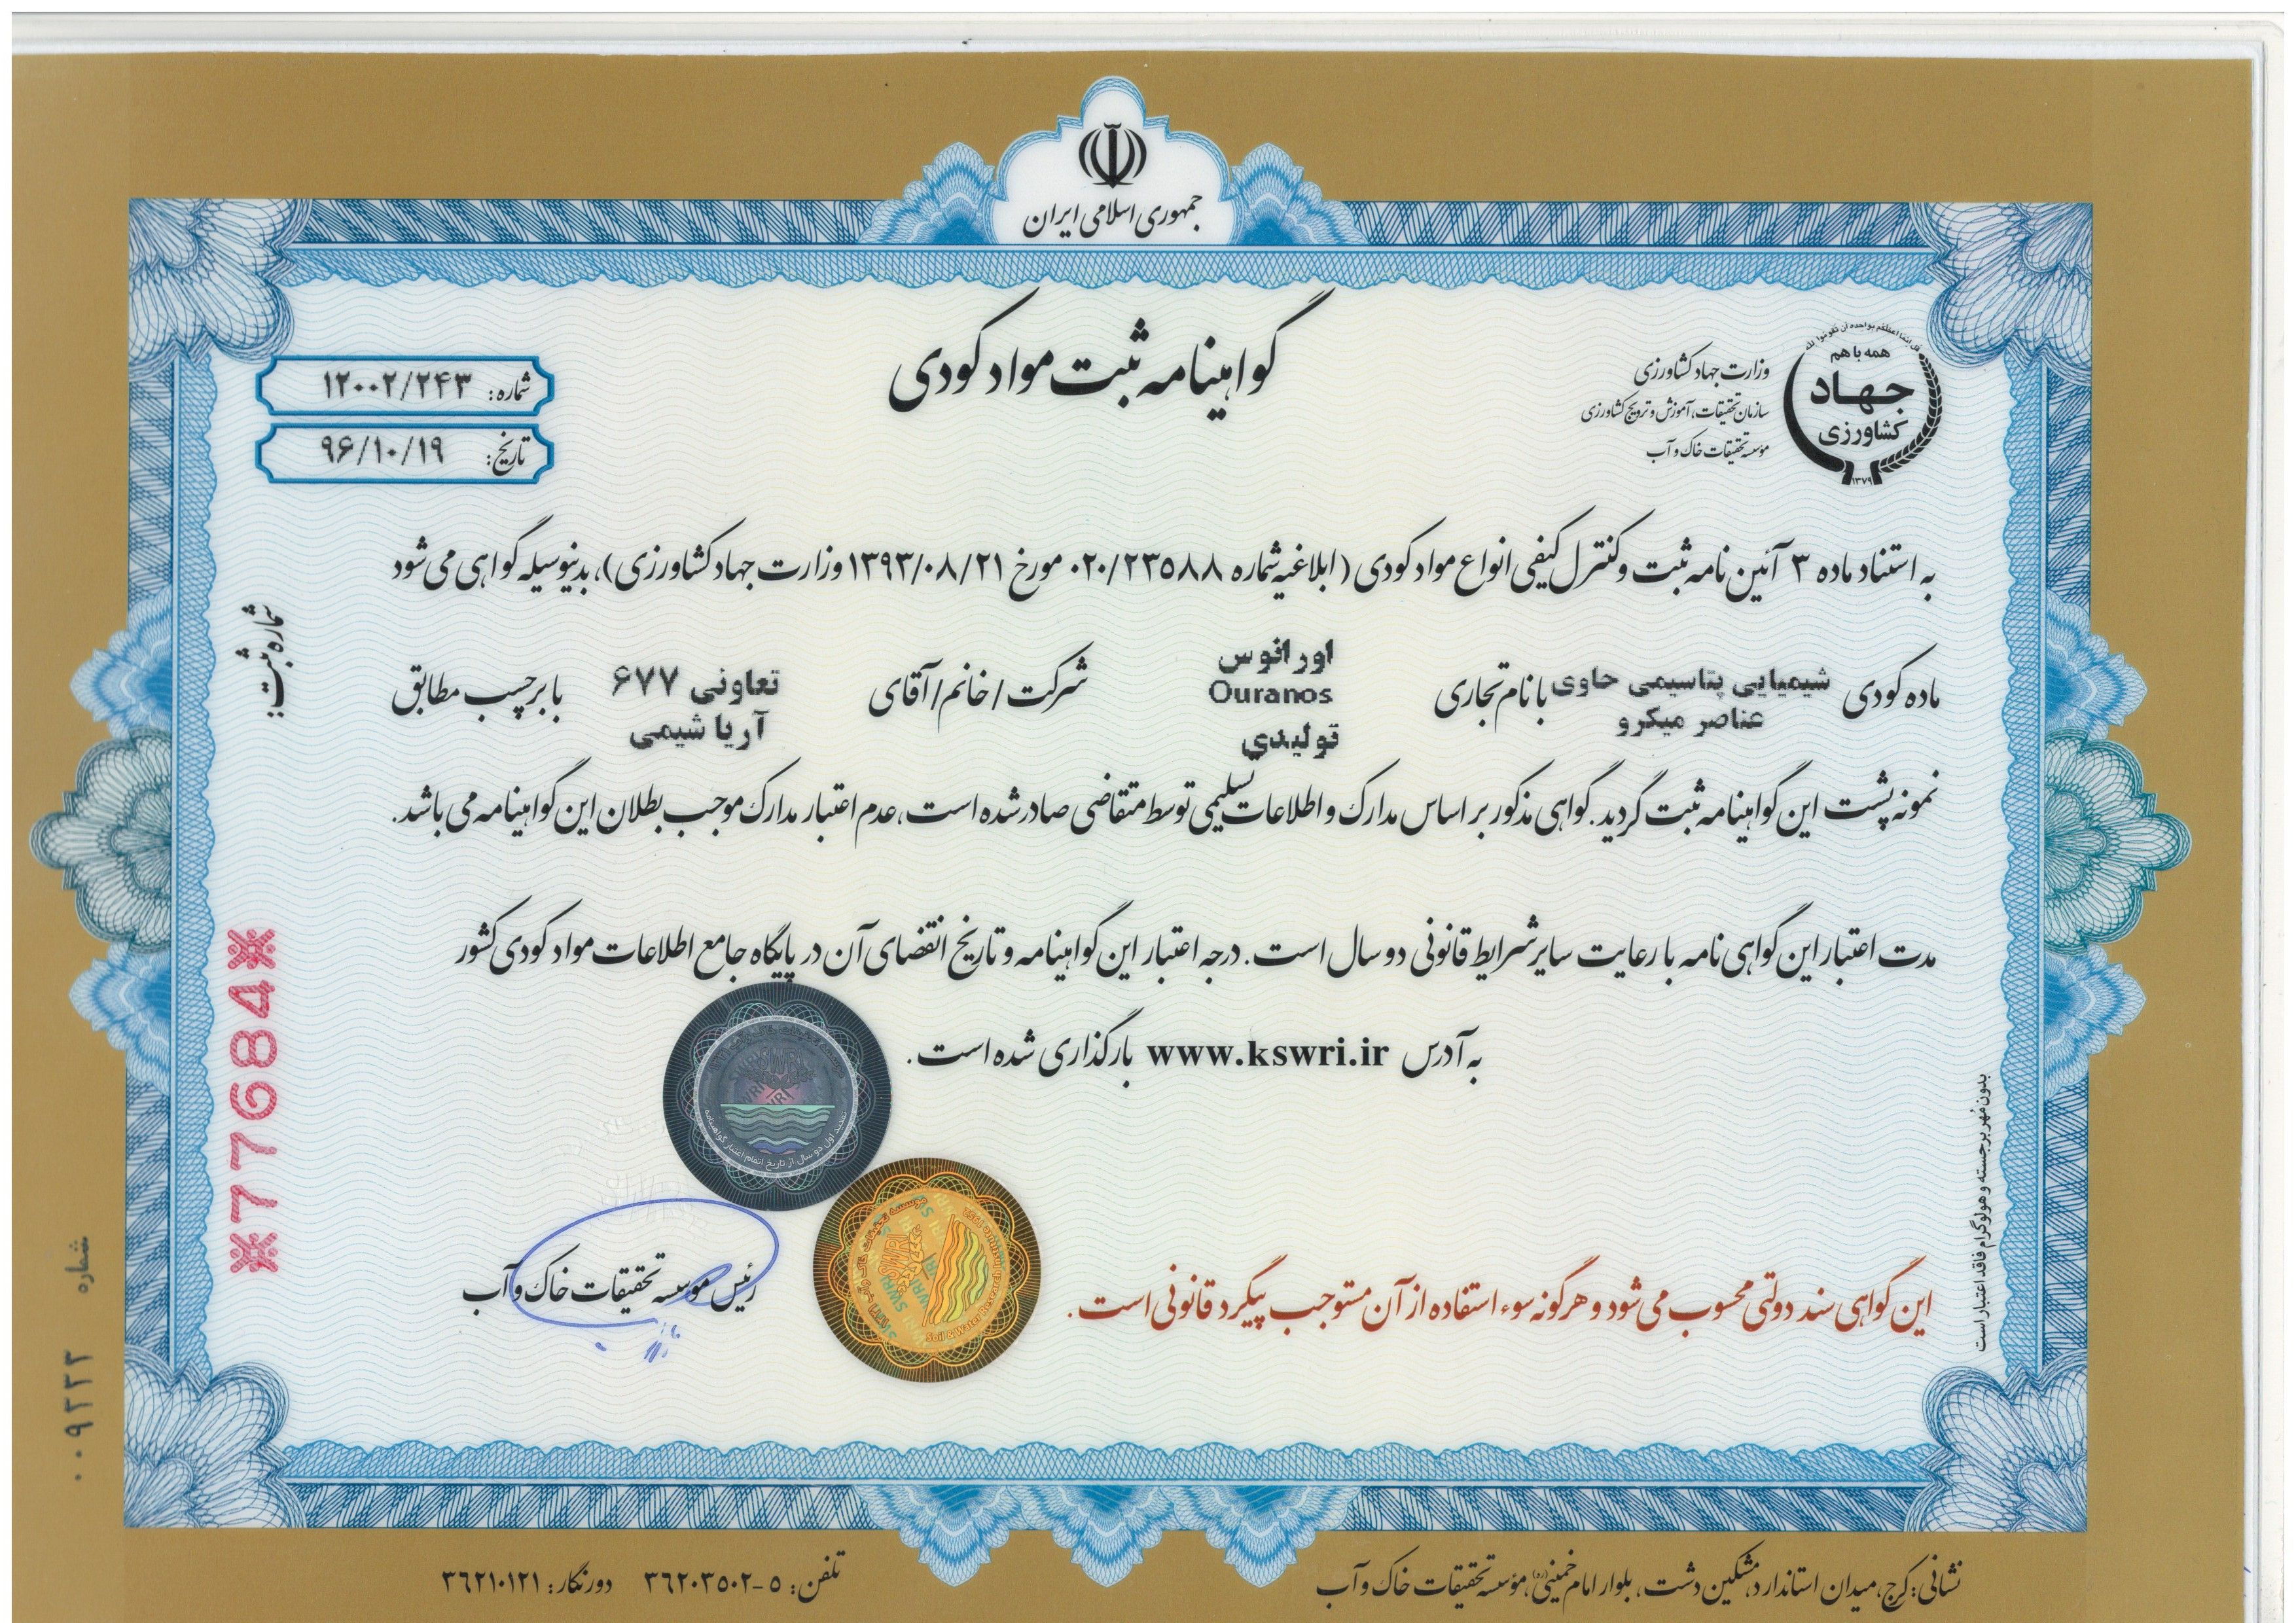 جمهوری اسلامی ایران
گواهینامه ثبت مواد کودی
قل انما اعظکم بواحده ان تقوموا لله
همه با هم
جهاد
کشاورزی
۱۳۷۹
وزارت جهاد کشاورزی
سازمان تحقیقات، آموزش و ترویج کشاورزی
موسسه تحقیقات خاک و آب
شماره: ۱۲۰۰۲/۲۴۳
تاریخ: ۹۶/۱۰/۱۹
به استناد ماده ۳ آئین نامه ثبت و کنترل کیفی انواع مواد کودی (ابلاغیه شماره ۰۲۰/۲۳۵۸۸ مورخ ۱۳۹۳/۰۸/۲۱ وزارت جهاد کشاورزی)، بدینوسیله گواهی می شود
ماده کودی شیمیایی پتاسیمی حاوی عناصر میکرو با نام تجاری اورانوس Ouranos تولیدی شرکت/خانم/آقای تعاونی ۶۷۷ آریا شیمی با برچسب مطابق
نمونه پشت این گواهینامه ثبت گردید. گواهی مذکور بر اساس مدارک و اطلاعات تسلیمی توسط متقاضی صادر شده است، عدم اعتبار مدارک موجب بطلان این گواهینامه می باشد.
مدت اعتبار این گواهی نامه با رعایت سایر شرایط قانونی دو سال است. درجه اعتبار این گواهینامه و تاریخ انقضای آن در پایگاه جامع اطلاعات مواد کودی کشور
به آدرس www.kswri.ir بارگذاری شده است.
تمدید اول دو سال از تاریخ اتمام اعتبار گواهینامه
موسسه تحقیقات خاک و آب
SWRI
Soil & Water Research Institute
رئیس موسسه تحقیقات خاک و آب
این گواهی سند دولتی محسوب می شود و هرگونه سوء استفاده از آن مستوجب پیگرد قانونی است.
بدون مُهر برجسته و هولوگرام فاقد اعتبار است
شماره ثبت:
*77684*
شماره ۰۰۹۲۳۳
نشانی: کرج، میدان استاندارد، مشکین دشت، بلوار امام خمینی(ره)، موسسه تحقیقات خاک و آب
تلفن: ۵-۳۶۲۰۳۵۰۲ دورنگار: ۳۶۲۱۰۱۲۱